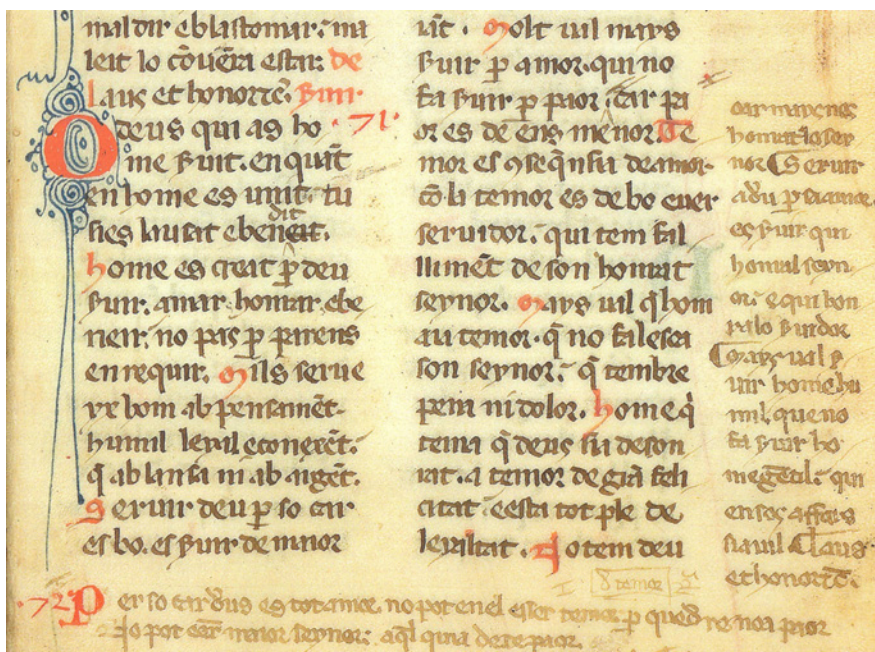 mal dir e blastomar: ma
leit lo cōuēra estar: de
Laus et honor tē. Ɓuir.
O deus qui as ho · 71 ·
me ẜuit. en quāt
en home es unit. tu
sies lausat e beneit. dit
home es creat ꝑ deu
ẜuir. amar. honrar. e be
neir. no pas ꝑ
enrequir. Mils serue
yx hom ab pensamēt.
humil leyal e
q̄ ab lansa ni ab argēt.
Seruir deu ꝑ so car
es bo. es ẜuir de maior
Molt ual mays
ẜuir ꝑ amor. qui no
fa ẜuir ꝑ paor. car pa
or es de ēns menor. Te
mor es de amor.
cō la temor es de bo euer
seruidor. qui tem fal
limēt de son honrat
seynor. Mays ual q̄ hom
au temor. q̄ no
son seynor: q̄ tembre
pena ni dolor. home q̄
tema q̄ deus sia deson
rat. a temor de grā feli
citat e esta tot ple de
leyaltat. No tem deu
car mays nes
honrat lo sey
nor Seruir
a deu ꝑ amor
es ẜuir qui
honra
or: e qui hon
ra lo ẜuidor
Mays ual
uir home hu
mil. que no
fa ẜuir ho
me gētil: qui
en sos affers
sia uil Laus
et honor tē.
temor
· 72 · Per so car deus es tot amor. no pot en el esser temor. ꝑ que deus no a paor
No pot eēr maior seynor: aq̄l qui a de re paor.